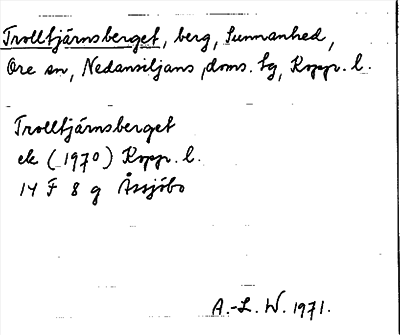 Trolltjärnsberget, berg, Sunnanhed,
Ore sn, Nedansiljans doms. tg, Kopp. l.
Trolltjärnsberget
ek (1970) Kopp. l.
14 F 8 g Åssjöbo
A.-L. W. 1971.